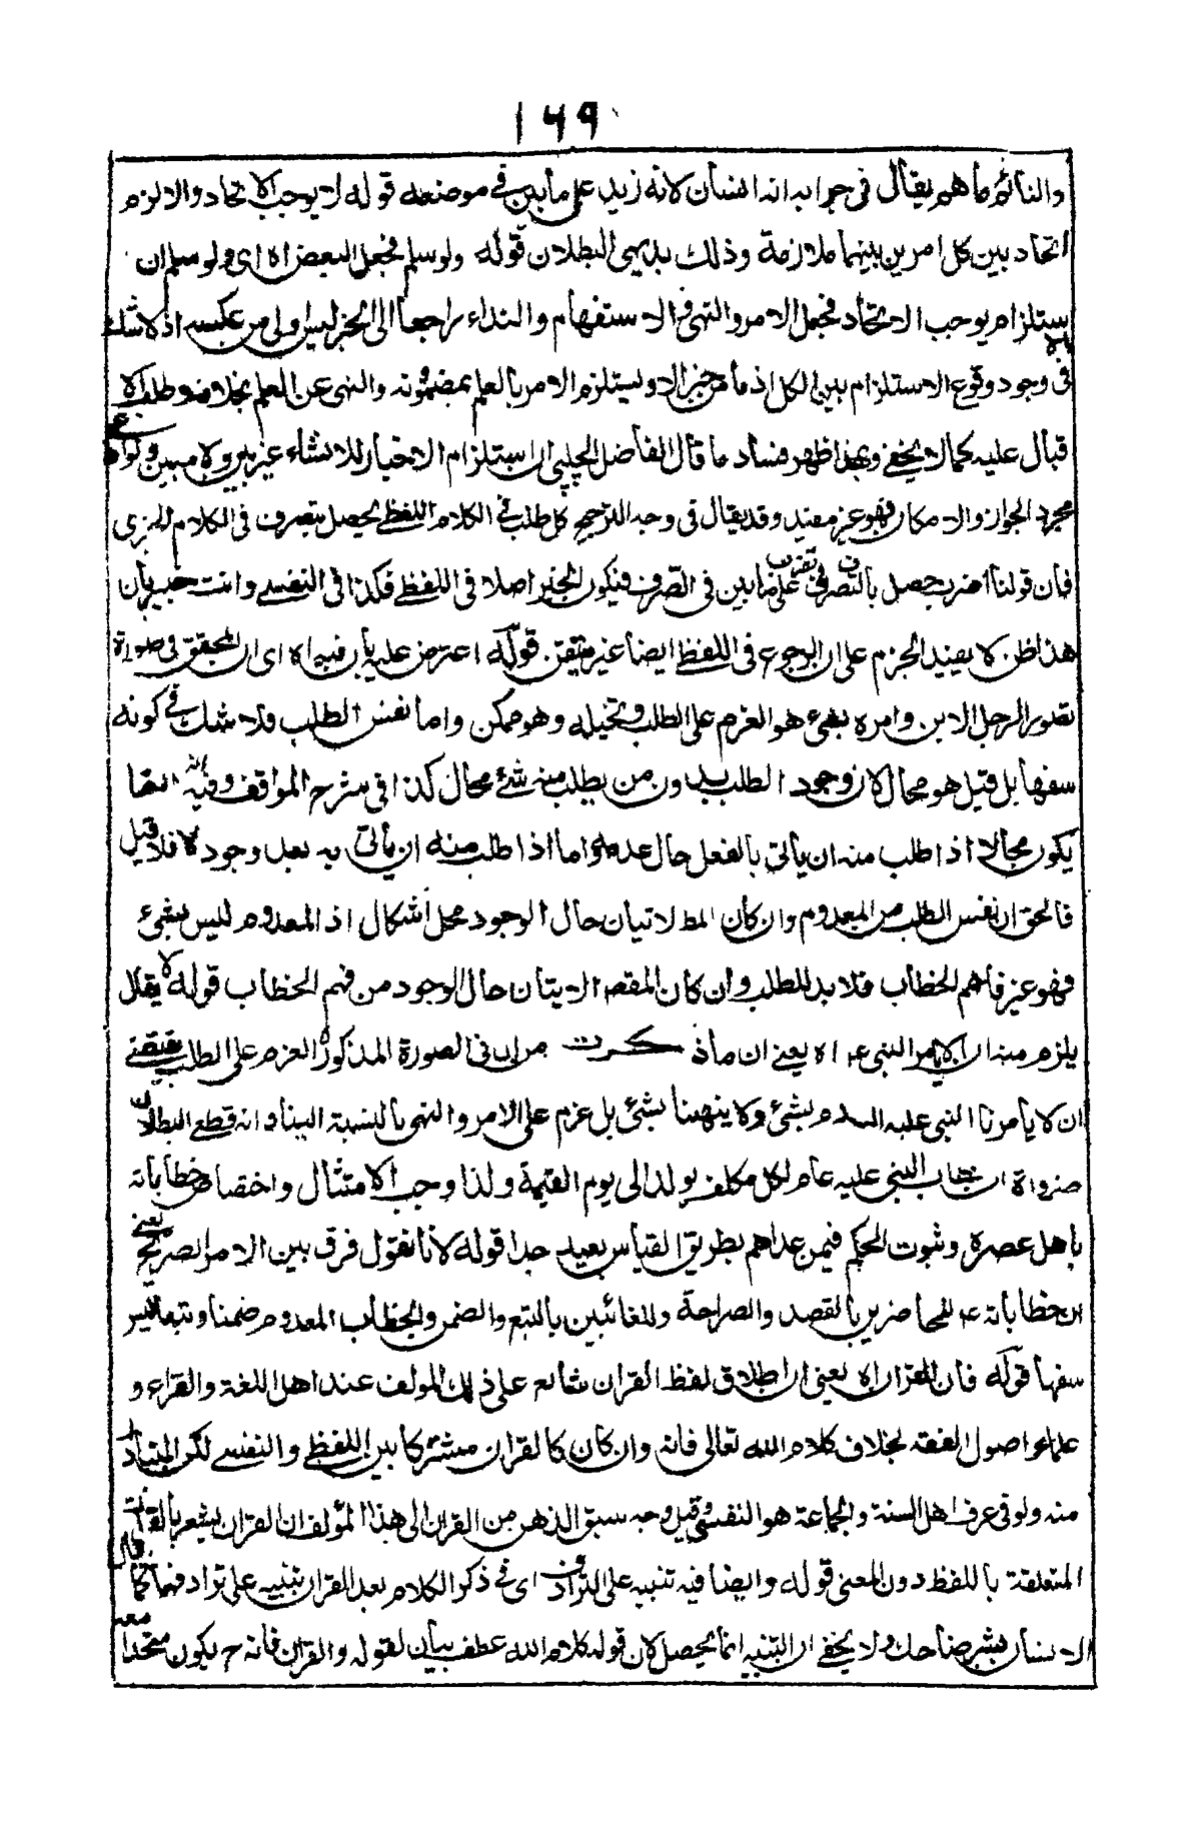 ١٦٩
والنائم ما هم يقال في جوابه انه انسان لانه زيد على ما بين في موضعه قوله لا يوجب الاتحاد والا لزم
اتحاد بين كل امرين بينهما ملازمة وذلك بديهي البطلان قوله ولو سلم فجعل البعض اه اى ولو سلم ان
الاستلزام يوجب الاتحاد فجعل الامر والنهى والاستفهام والنداء راجعا الى الخبر ليس اولى من عكسه اذ لا شك
فى وجود وقوع الاستلزام بين الكل اذ ما من خبر الا ويستلزم الامر بالعلم بمضمونه والنهى عن العلم بخلافه وطلب الا
قبال عليه كما لا يخفى وبهذا ظهر فساد ما قال الفاضل الچلپى ان استلزام الاخبار للانشاء غير بين ولا مبين ولو ادعى
مجرد الجواز والامكان فهو غير مفيد وقد يقال فى وجه الترجيح كل طلب فى الكلام اللفظى يحصل بتصرف فى الكلام الخبرى
فان قولنا اضرب حصل بالتصرف فى تضرب على ما بين فى الصرف فيكون الخبر اصلا فى اللفظ فكذا فى النفسى وانت خبير بان
هذا ظن لا يفيد الجزم على ان الرجوع فى اللفظ ايضا غير متيقن قوله اعترض عليه بان فيه اه اى ان المحقق فى صورة
تصور الرجل الابن وامره بشئ هو العزم على الطلب وتخيله وهو ممكن واما نفس الطلب فلا شك فى كونه
سفها بل قيل هو محال لان وجود الطلب بدون من يطلب منه شئ محال كذا فى شرح المواقف وفيه انه انما
يكون محالا اذا طلب منه ان يأتى بالفعل حال عدمه واما اذا طلب منه ان يأتى به بعد وجوده فلا قيل
فالحق ان نفس الطلب من المعدوم وان كان المط لاتيان حال الوجود محل اشكال اذ المعدوم ليس بشئ
فهو غير فاهم الخطاب فلا بد للطلب وان كان المقصد الايتان حال الوجود من فهم الخطاب قوله لا يقال
يلزم منه ان لا يأمر النبى ع اه يعنى ان ما ذكرت من ان فى الصورة المذكورة العزم على الطلب يقتضى
ان لا يأمرنا النبى عليه السلام بشئ ولا ينهينا بشئ بل عزم على الامر والنهى بالنسبة الينا وانه قطعى البطلان
ضرورة ان خطاب النبى عليه عام لكل مكلف يولد الى يوم القيمة ولذا وجب الامتثال واختصاص خطاباته
باهل عصره وثبوت الحكم فيمن عداهم بطريق القياس بعيد جدا قوله لانا نقول فرق بين الامر الصريح يعنى
ان خطاباته ع للحاضرين بالقصد والصراحة وللغائبين بالتبع والضمن والخطاب المعدوم ضمنا وتبعا ليس
سفها قوله فان القران اه يعنى ان اطلاق لفظ القران شائع على ذلك المولف عند اهل اللغة والقراء و
علماء اصول الفقه بخلاف كلام الله تعالى فانه وان كان كالقران مشتركا بين اللفظى والنفسى لكن المتبادر
منه ولو فى عرف اهل السنة والجماعة هو النفسى وقيل وجه سبق الذهن من القران الى هذا المؤلف ان القران يشعر بالقرأة
المتعلقة باللفظ دون المعنى قوله وايضا فيه تنبيه على الترادف اى فى ذكر الكلام بعد القران تنبيه على ترادفهما كما يقال
الانسان بشر ضاحك ولا يخفى ان التنبيه انما يحصل لان قوله كلام الله عطف بيان لقوله والقران فانه ح يكون متحدا معه